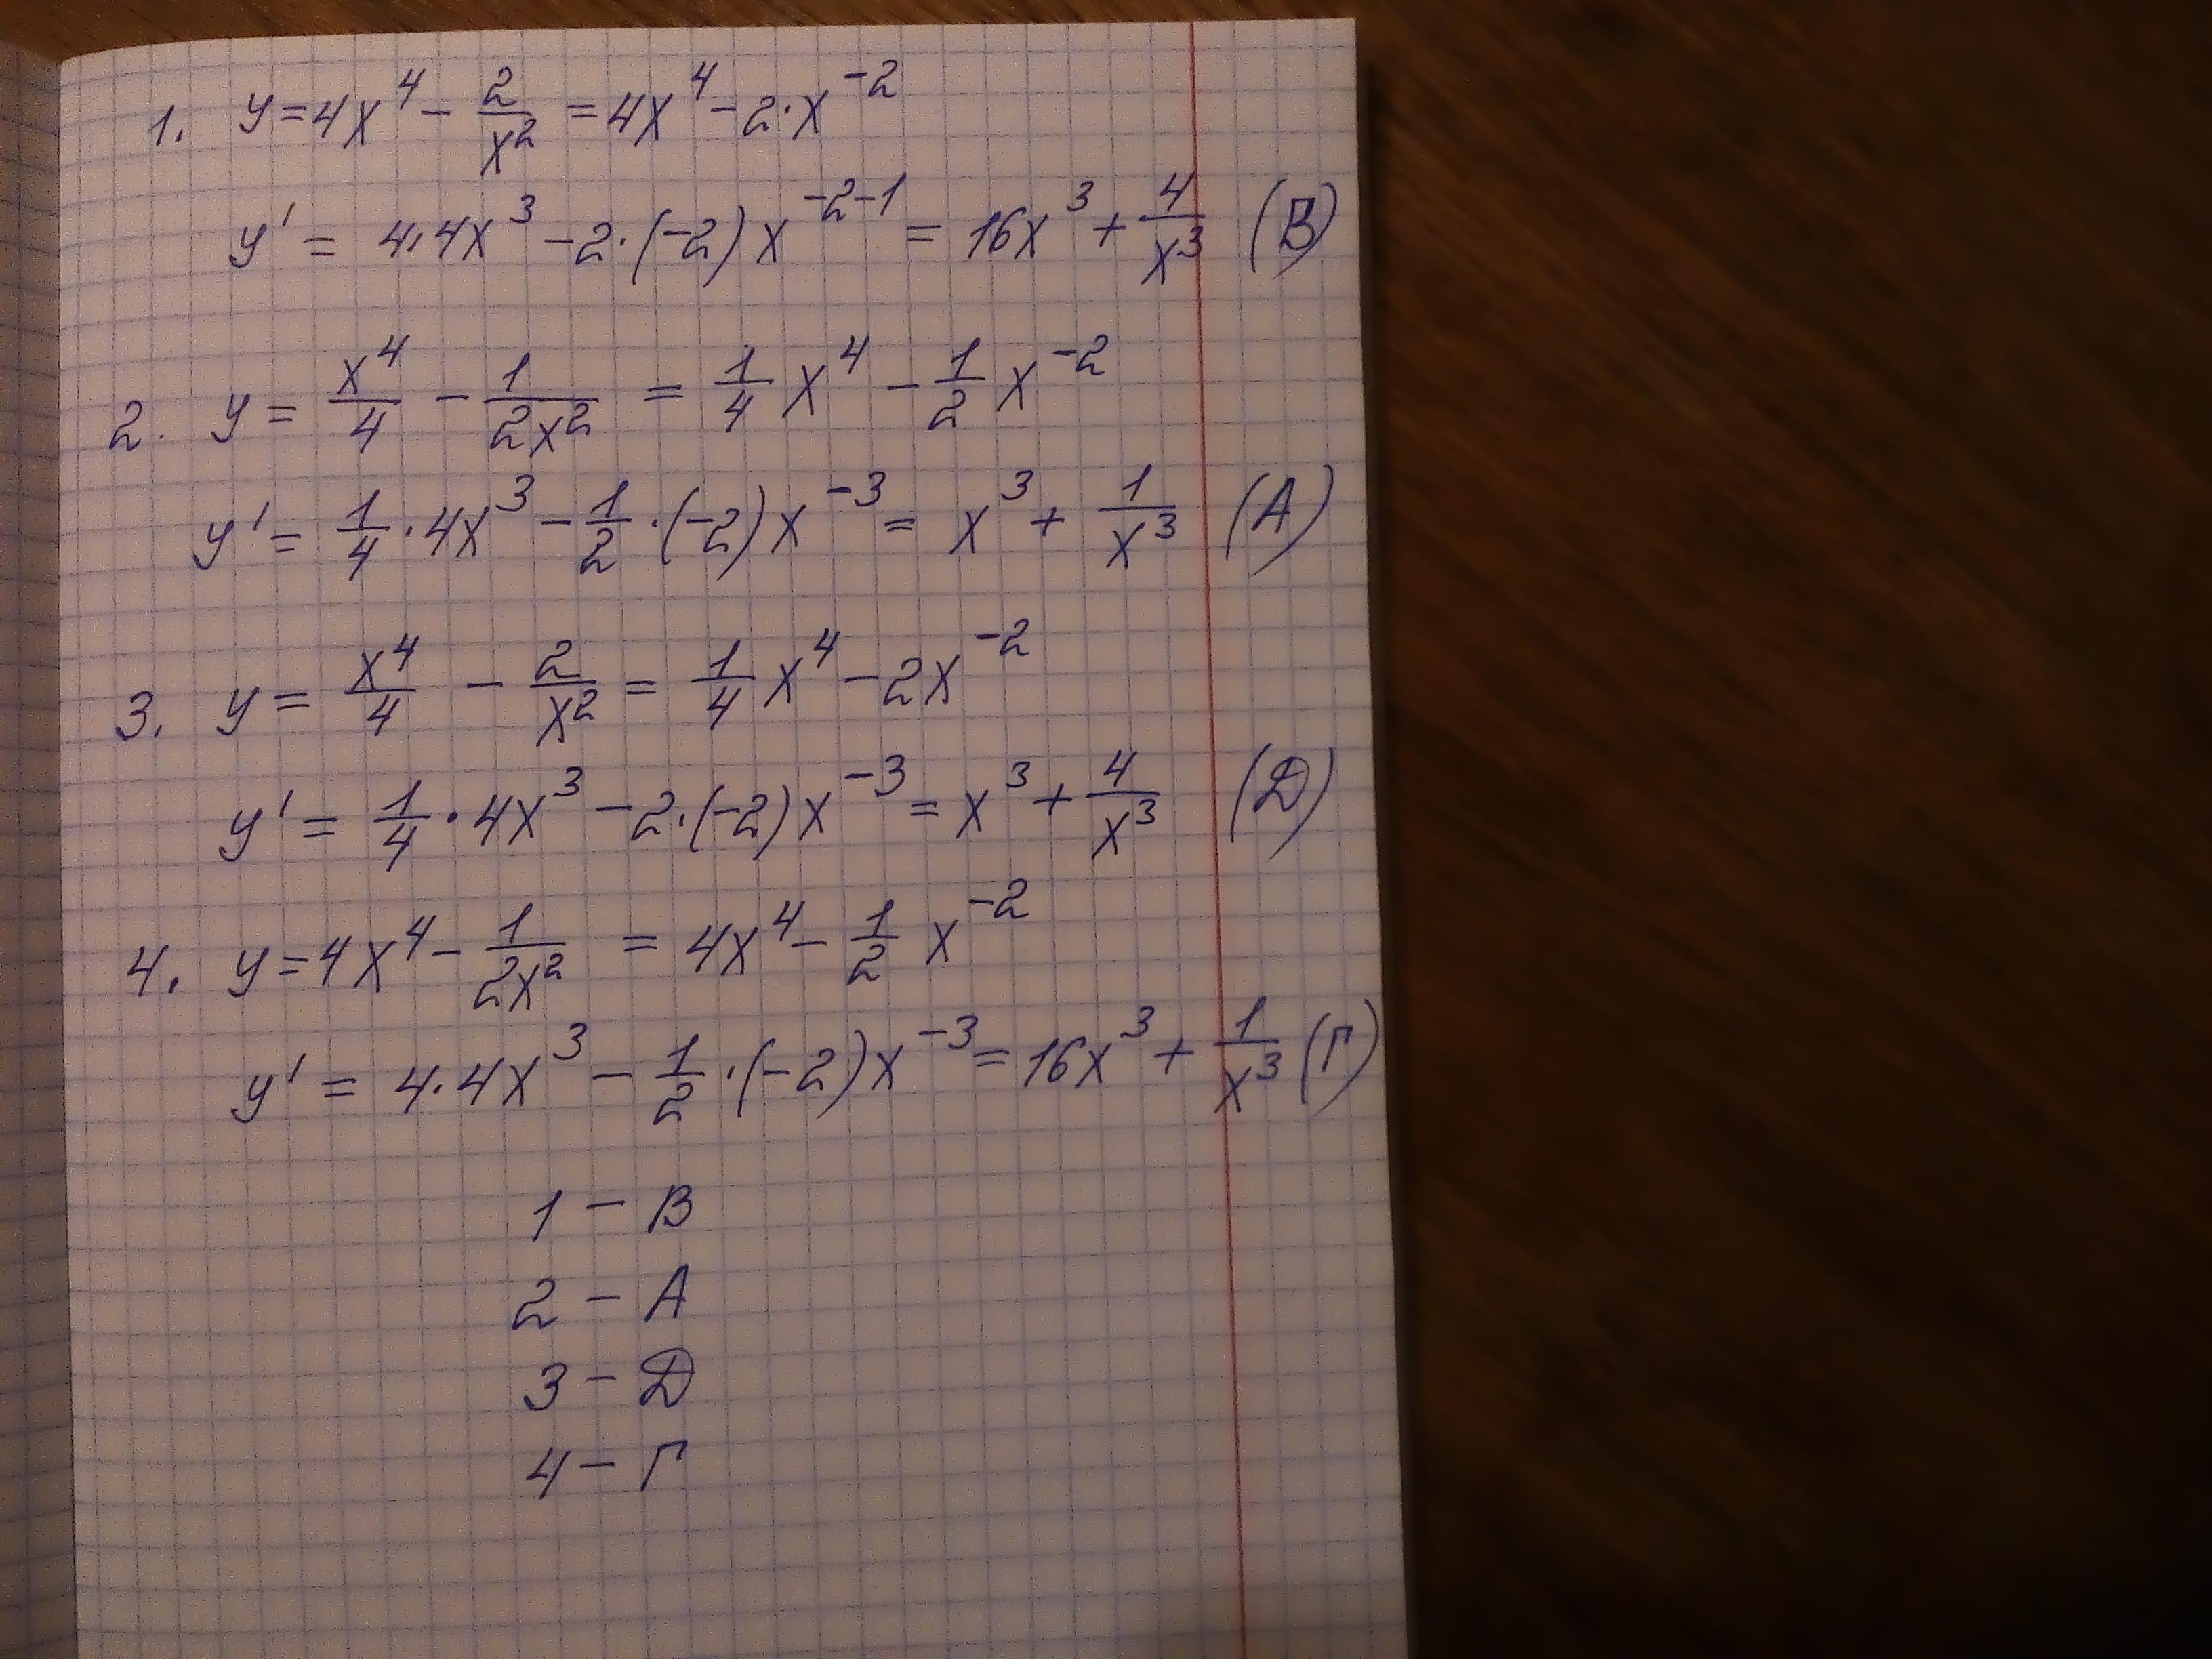 1. y=4x⁴ - 2/x² = 4x⁴ - 2·x⁻²
y' = 4·4x³ - 2·(-2)x⁻²⁻¹ = 16x³ + 4/x³ (В)
2. y = x⁴/4 - 1/2x² = 1/4 x⁴ - 1/2 x⁻²
y' = 1/4 · 4x³ - 1/2 · (-2)x⁻³ = x³ + 1/x³ (А)
3. y = x⁴/4 - 2/x² = 1/4 x⁴ - 2x⁻²
y' = 1/4 · 4x³ - 2·(-2)x⁻³ = x³ + 4/x³ (Д)
4. y=4x⁴ - 1/2x² = 4x⁴ - 1/2 x⁻²
y' = 4·4x³ - 1/2 · (-2)x⁻³ = 16x³ + 1/x³ (Г)
1 - В
2 - А
3 - Д
4 - Г